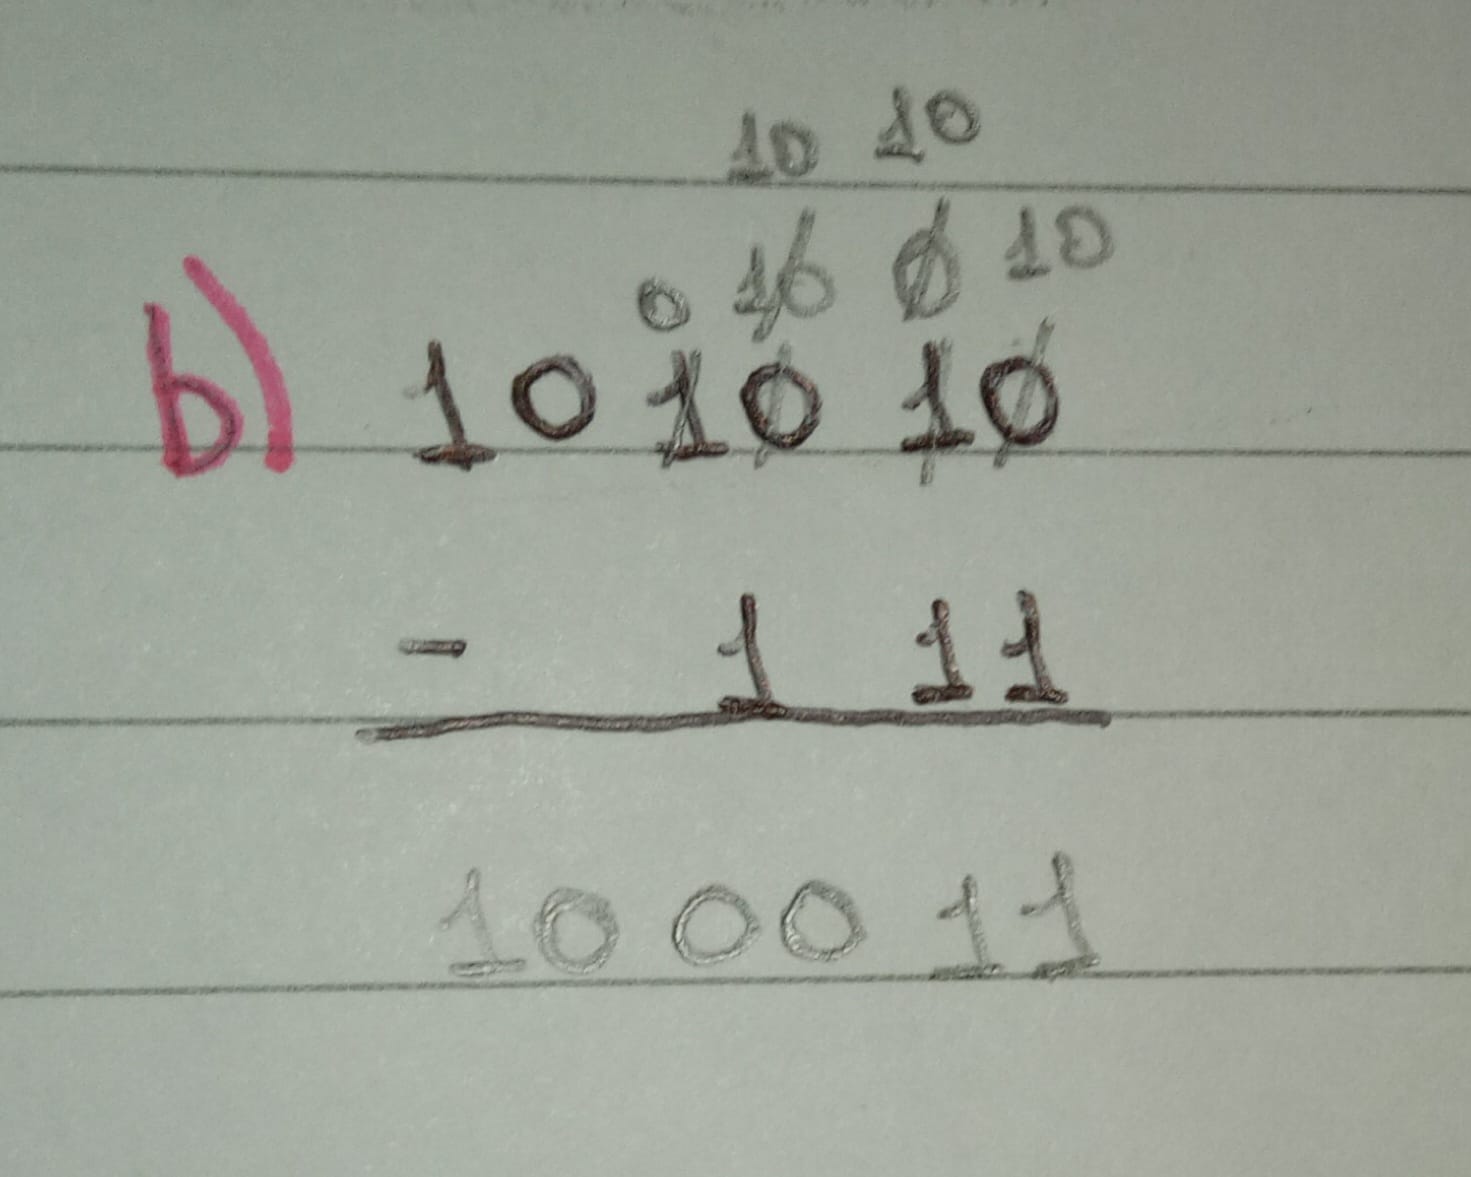 10 10
0 10 0 10
b) 101010
- 111
100011